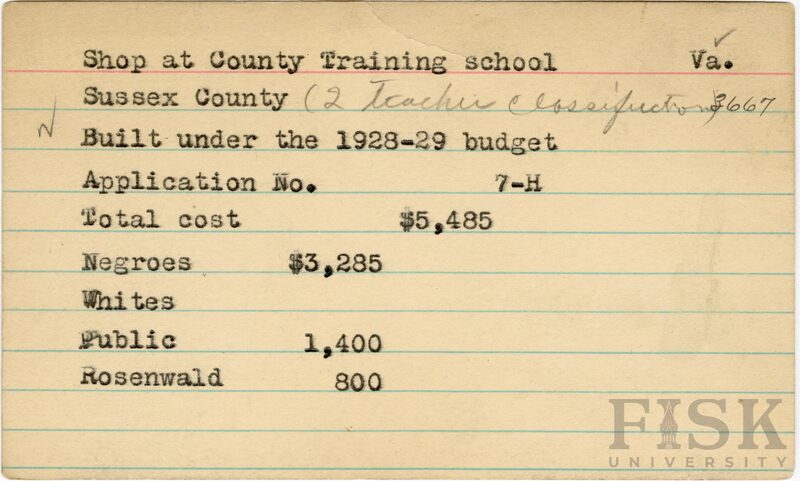 Shop at County Training school Va.
Sussex County (2 Teacher Classification) 3667
Built under the 1928-29 budget
Application No. 7-H
Total cost $5,485
Negroes $3,285
Whites
Public 1,400
Rosenwald 800
FISK
UNIVERSITY